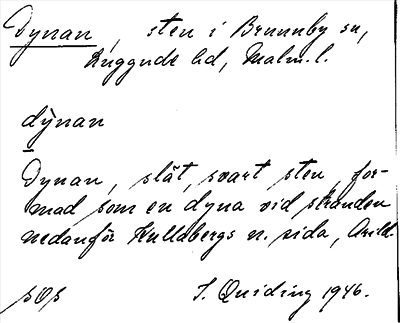 Dynan, sten i Brunnby sn,
Luggude hd, Malm. l.
dy̆nan
Dynan, slät, svart sten, for-
mad som en dyna vid stranden
nedanför Kullabergs n. sida, Arild.
sOs S. Quiding 1946.